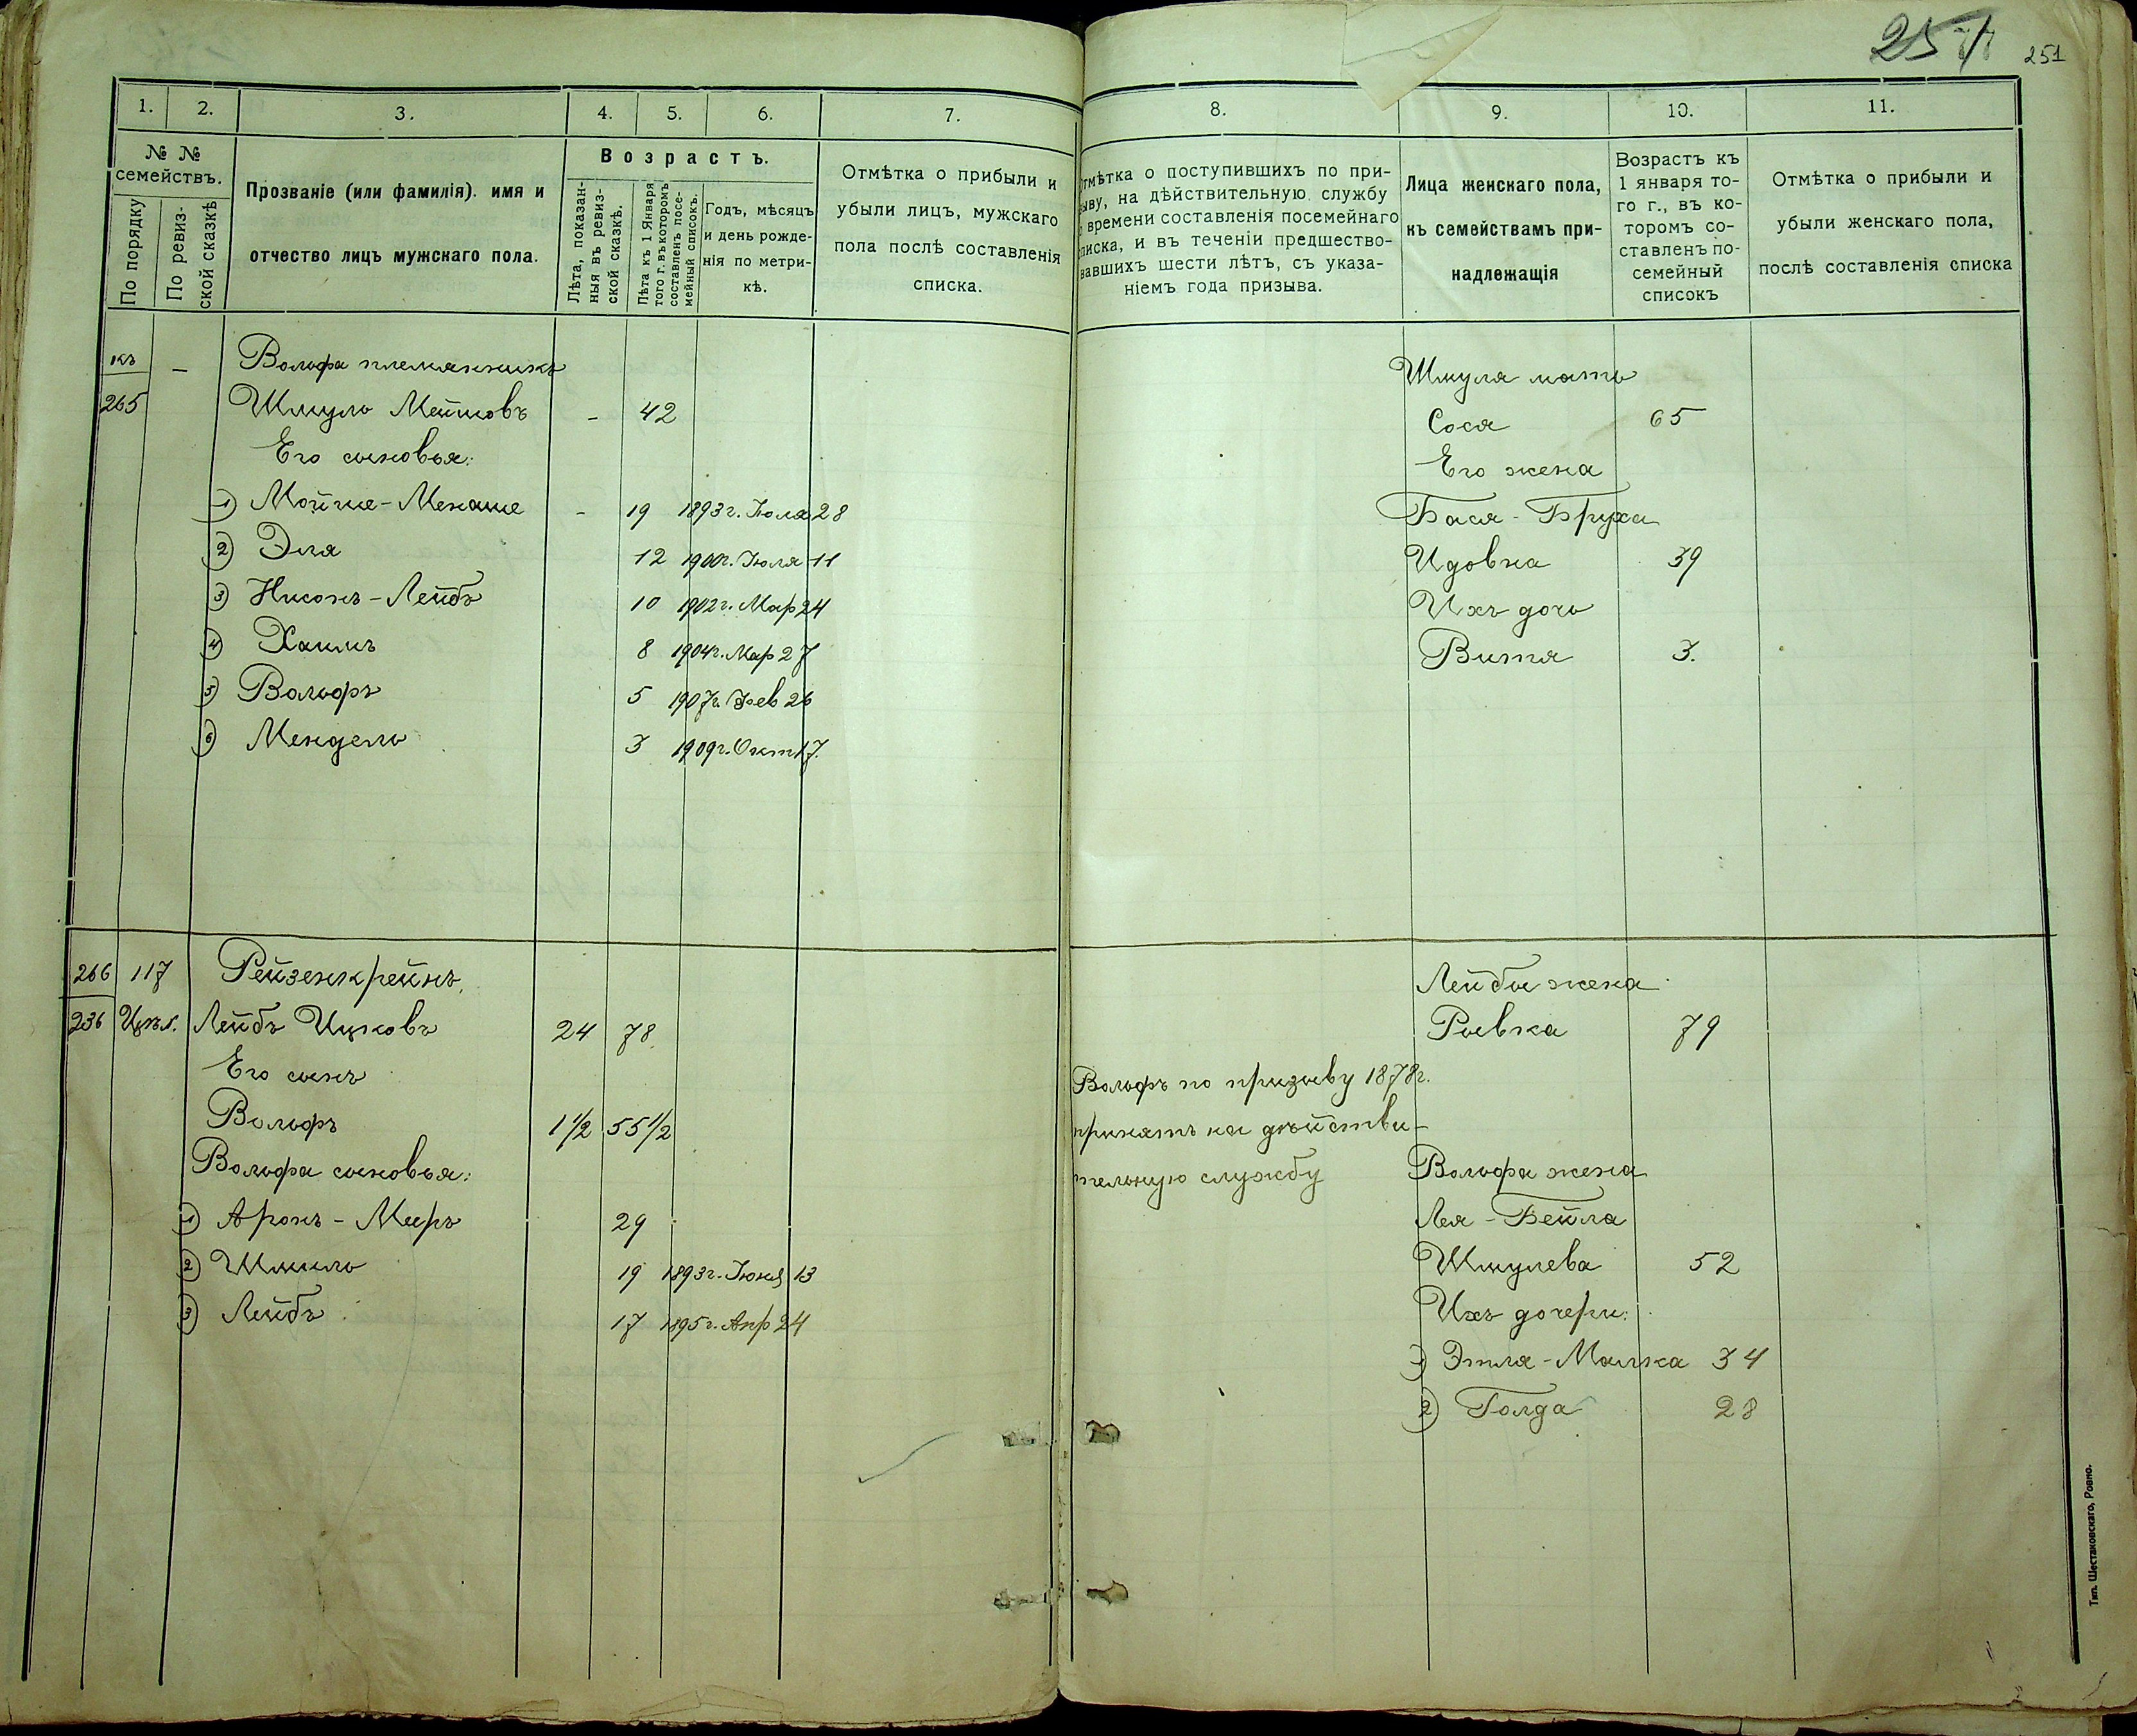 251
251
1.
2.
3.
4.
5.
6.
7.
№ №
семействъ.
По порядку
По ревиз-
ской сказкѣ
Прозваніе (или фамилія). имя и
отчество лицъ мужскаго пола.
Возрастъ.
Лѣта, показан-
ныя въ ревиз-
ской сказкѣ.
Лѣта къ 1 Января
того г. въ которомъ
составленъ посе-
мейный списокъ.
Годъ, мѣсяцъ
и день рожде-
нія по метри-
кѣ.
Отмѣтка о прибыли и
убыли лицъ, мужскаго
пола послѣ составленія
списка.
къ
265
—
Вольфа племянникъ
Шмуль Мейшовъ - 42
Его сыновья:
1) Мойше-Менаше - 19 1893 г. Іюля 28
2) Эля 12 1900 г. Іюля 11
3) Нисонъ-Лейбъ 10 1902 г. Мар 24
4) Хаимъ 8 1904 г. Мар 27
5) Вольфъ 5 1907 г. Фев 26
6) Мендель 3 1909 г. Окт 17.
266 117 Рейзенкрейнъ,
236 Лейбъ Ицковъ 24 78
Его сынъ
Вольфъ 1 1/2 55 1/2
Вольфа сыновья:
1) Аронъ-Мееръ 29
2) Шмиль 19 1893 г. Іюня 13
3) Лейбъ 17 1895 г. Апр 24
8.
9.
10.
11.
Отмѣтка о поступившихъ по при-
зыву, на дѣйствительную службу
времени составленія посемейнаго
списка, и въ теченіи предшество-
вавшихъ шести лѣтъ, съ указа-
ніемъ года призыва.
Лица женскаго пола,
къ семействамъ при-
надлежащія
Возрастъ къ
1 января то-
го г., въ ко-
торомъ со-
ставленъ по-
семейный
списокъ
Отмѣтка о прибыли и
убыли женскаго пола,
послѣ составленія списка
Шмуля мать
Сося 65
Его жена
Бася-Бруха
Идовна 39
Ихъ дочь
Витя 3.
Лейбы жена
Рывка 79
Вольфъ по призыву 1878 г.
принятъ на дѣйстви-
тельную службу
Вольфа жена
Лея-Бейла
Шмулева 52
Ихъ дочери:
1) Этля-Малка 34
2) Голда 28
Тип. Шестаковскаго, Ровно.